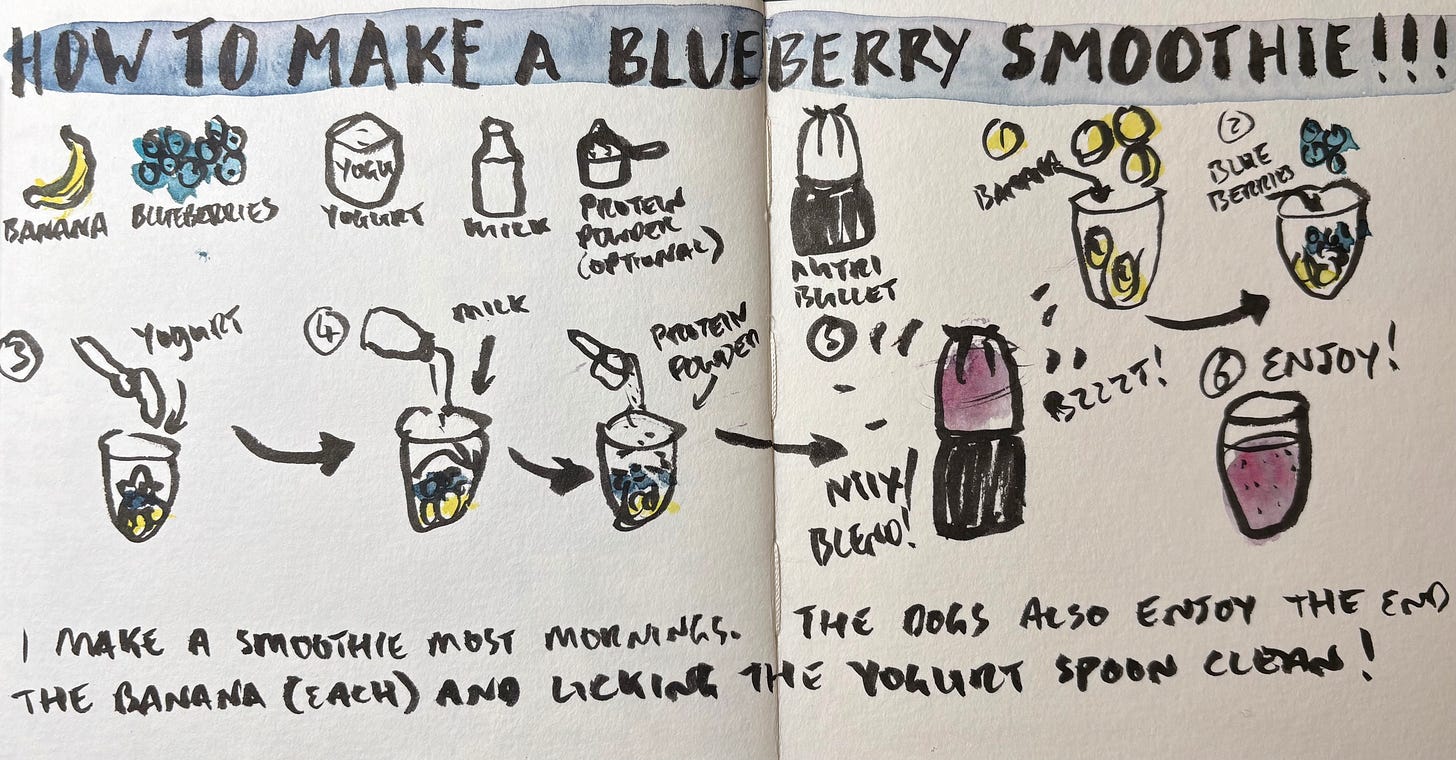 HOW TO MAKE A BLUEBERRY SMOOTHIE!!!
BANANA
BLUEBERRIES
YOGU
YOGURT
MILK
PROTEIN
POWDER
(OPTIONAL)
NUTRI
BULLET
1
BANANA
2
BLUE
BERRIES
3
YOGURT
4
MILK
PROTEIN
POWDER
5
BZZZT!
MIX/
BLEND!
6 ENJOY!
I MAKE A SMOOTHIE MOST MORNINGS. THE DOGS ALSO ENJOY THE END
THE BANANA (EACH) AND LICKING THE YOGURT SPOON CLEAN!